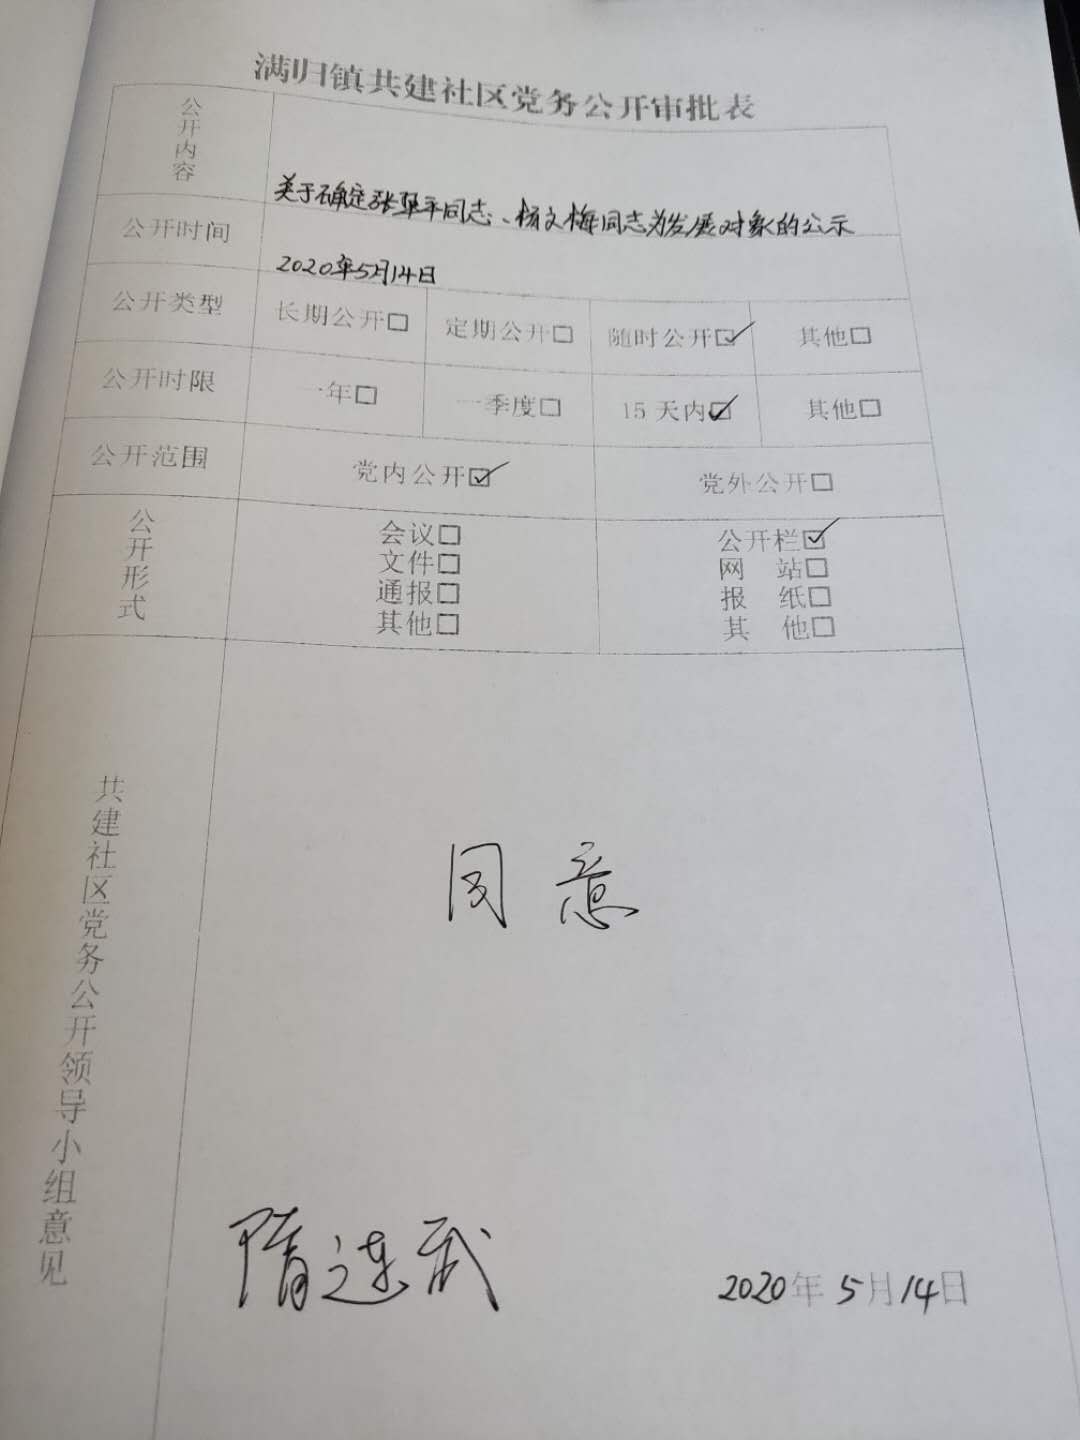 满归镇共建社区党务公开审批表
公开内容
关于确定张翠平同志、杨文梅同志为发展对象的公示
公开时间
2020年5月14日
公开类型 长期公开□ 定期公开□ 随时公开☑ 其他□
公开时限 一年□ 一季度□ 15天内☑ 其他□
公开范围 党内公开☑ 党外公开□
公开形式
会议□ 公开栏☑
文件□ 网 站□
通报□ 报 纸□
其他□ 其 他□
共建社区党务公开领导小组意见
同意
隋连武
2020年5月14日